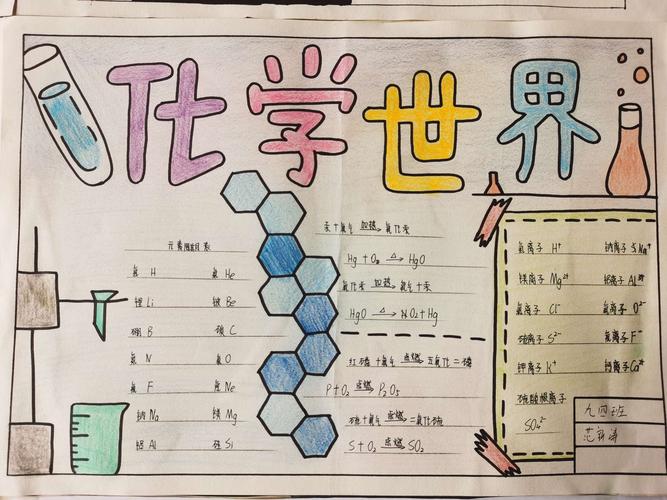 化学世界
元素周期表
氢 H 氦 He
锂 Li 铍 Be
硼 B 碳 C
氮 N 氧 O
氟 F 氖 Ne
钠 Na 镁 Mg
铝 Al 硅 Si
汞+氧气 加热 氧化汞
Hg + O₂ △ HgO
氧化汞 加热 氧气+汞
HgO △ O₂ + Hg
红磷+氧气 点燃 五氧化二磷
P + O₂ 点燃 P₂O₅
硫+氧气 点燃 二氧化硫
S + O₂ 点燃 SO₂
氢离子 H⁺ 钠离子 Na⁺
镁离子 Mg²⁺ 铝离子 Al³⁺
氯离子 Cl⁻ 氧离子 O²⁻
硫离子 S²⁻ 氟离子 F⁻
钾离子 K⁺ 钙离子 Ca²⁺
硫酸根离子
SO₄²⁻
九四班